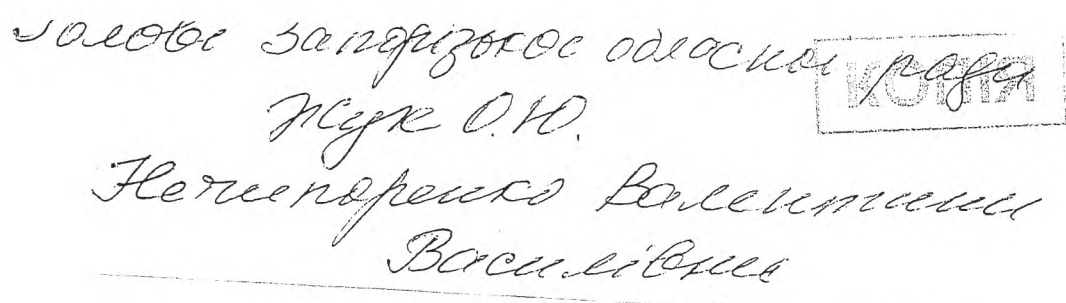 Голові Запорізької обласної ради
КОПІЯ
Жук О.Ю.
Нечипоренко Валентини
Василівни